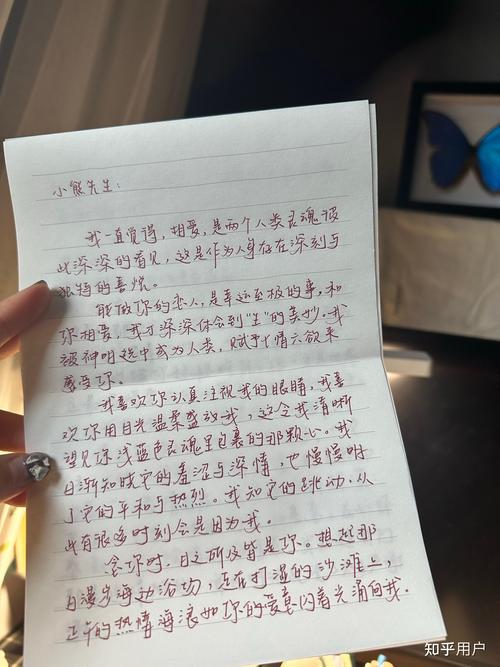 小熊先生：
我一直觉得，相爱，是两个人类灵魂彼
此深深的看见，这是作为人身存在深刻与
独特的喜悦。
能做你的恋人，是幸运至极的事，和
你相爱，我才深深体会到“生”的美妙。我
被神明选中成为人类，赋予七情六欲来
感受你。
我喜欢你认真注视我的眼睛，我喜
欢你用目光温柔盛放我，这令我清晰
望见你浅蓝色灵魂里包裹的那颗心。我
日渐知晓它的羞涩与深情，也慢慢咂
了它的平和与热烈。我知它的跳动，从
此有很多时刻会是因为我。
念你时，目之所及皆是你。想起那
日漫步海边浴场，走在打湿的沙滩上，
正午的热情海浪如你的爱意闪着光涌向我.
知乎用户